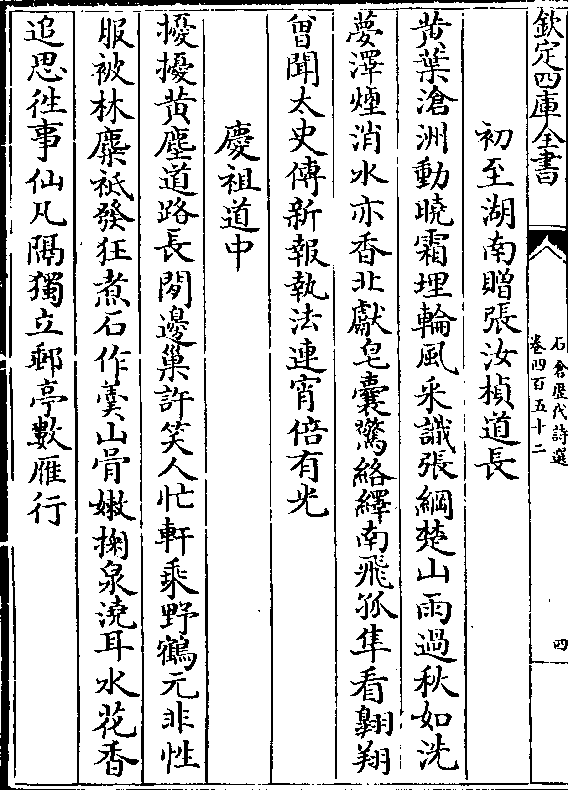 欽定四庫全書
石倉歷代詩選
卷四百五十二
四
初至湖南贈張汝楨道長
黄葉滄洲動曉霜埋輪風采識張綱楚山雨過秋如洗
夢澤煙消水亦香北獻皂囊驚絡繹南飛孤隼看翺翔
曾聞太史傳新報執法連宵倍有光
慶祖道中
擾擾黄塵道路長閒邊巢許笑人忙軒乘野鶴元非性
服被林麋祗發狂煮石作羮山骨嫩掬泉澆耳水花香
追思徃事仙凡隔獨立郵亭數雁行